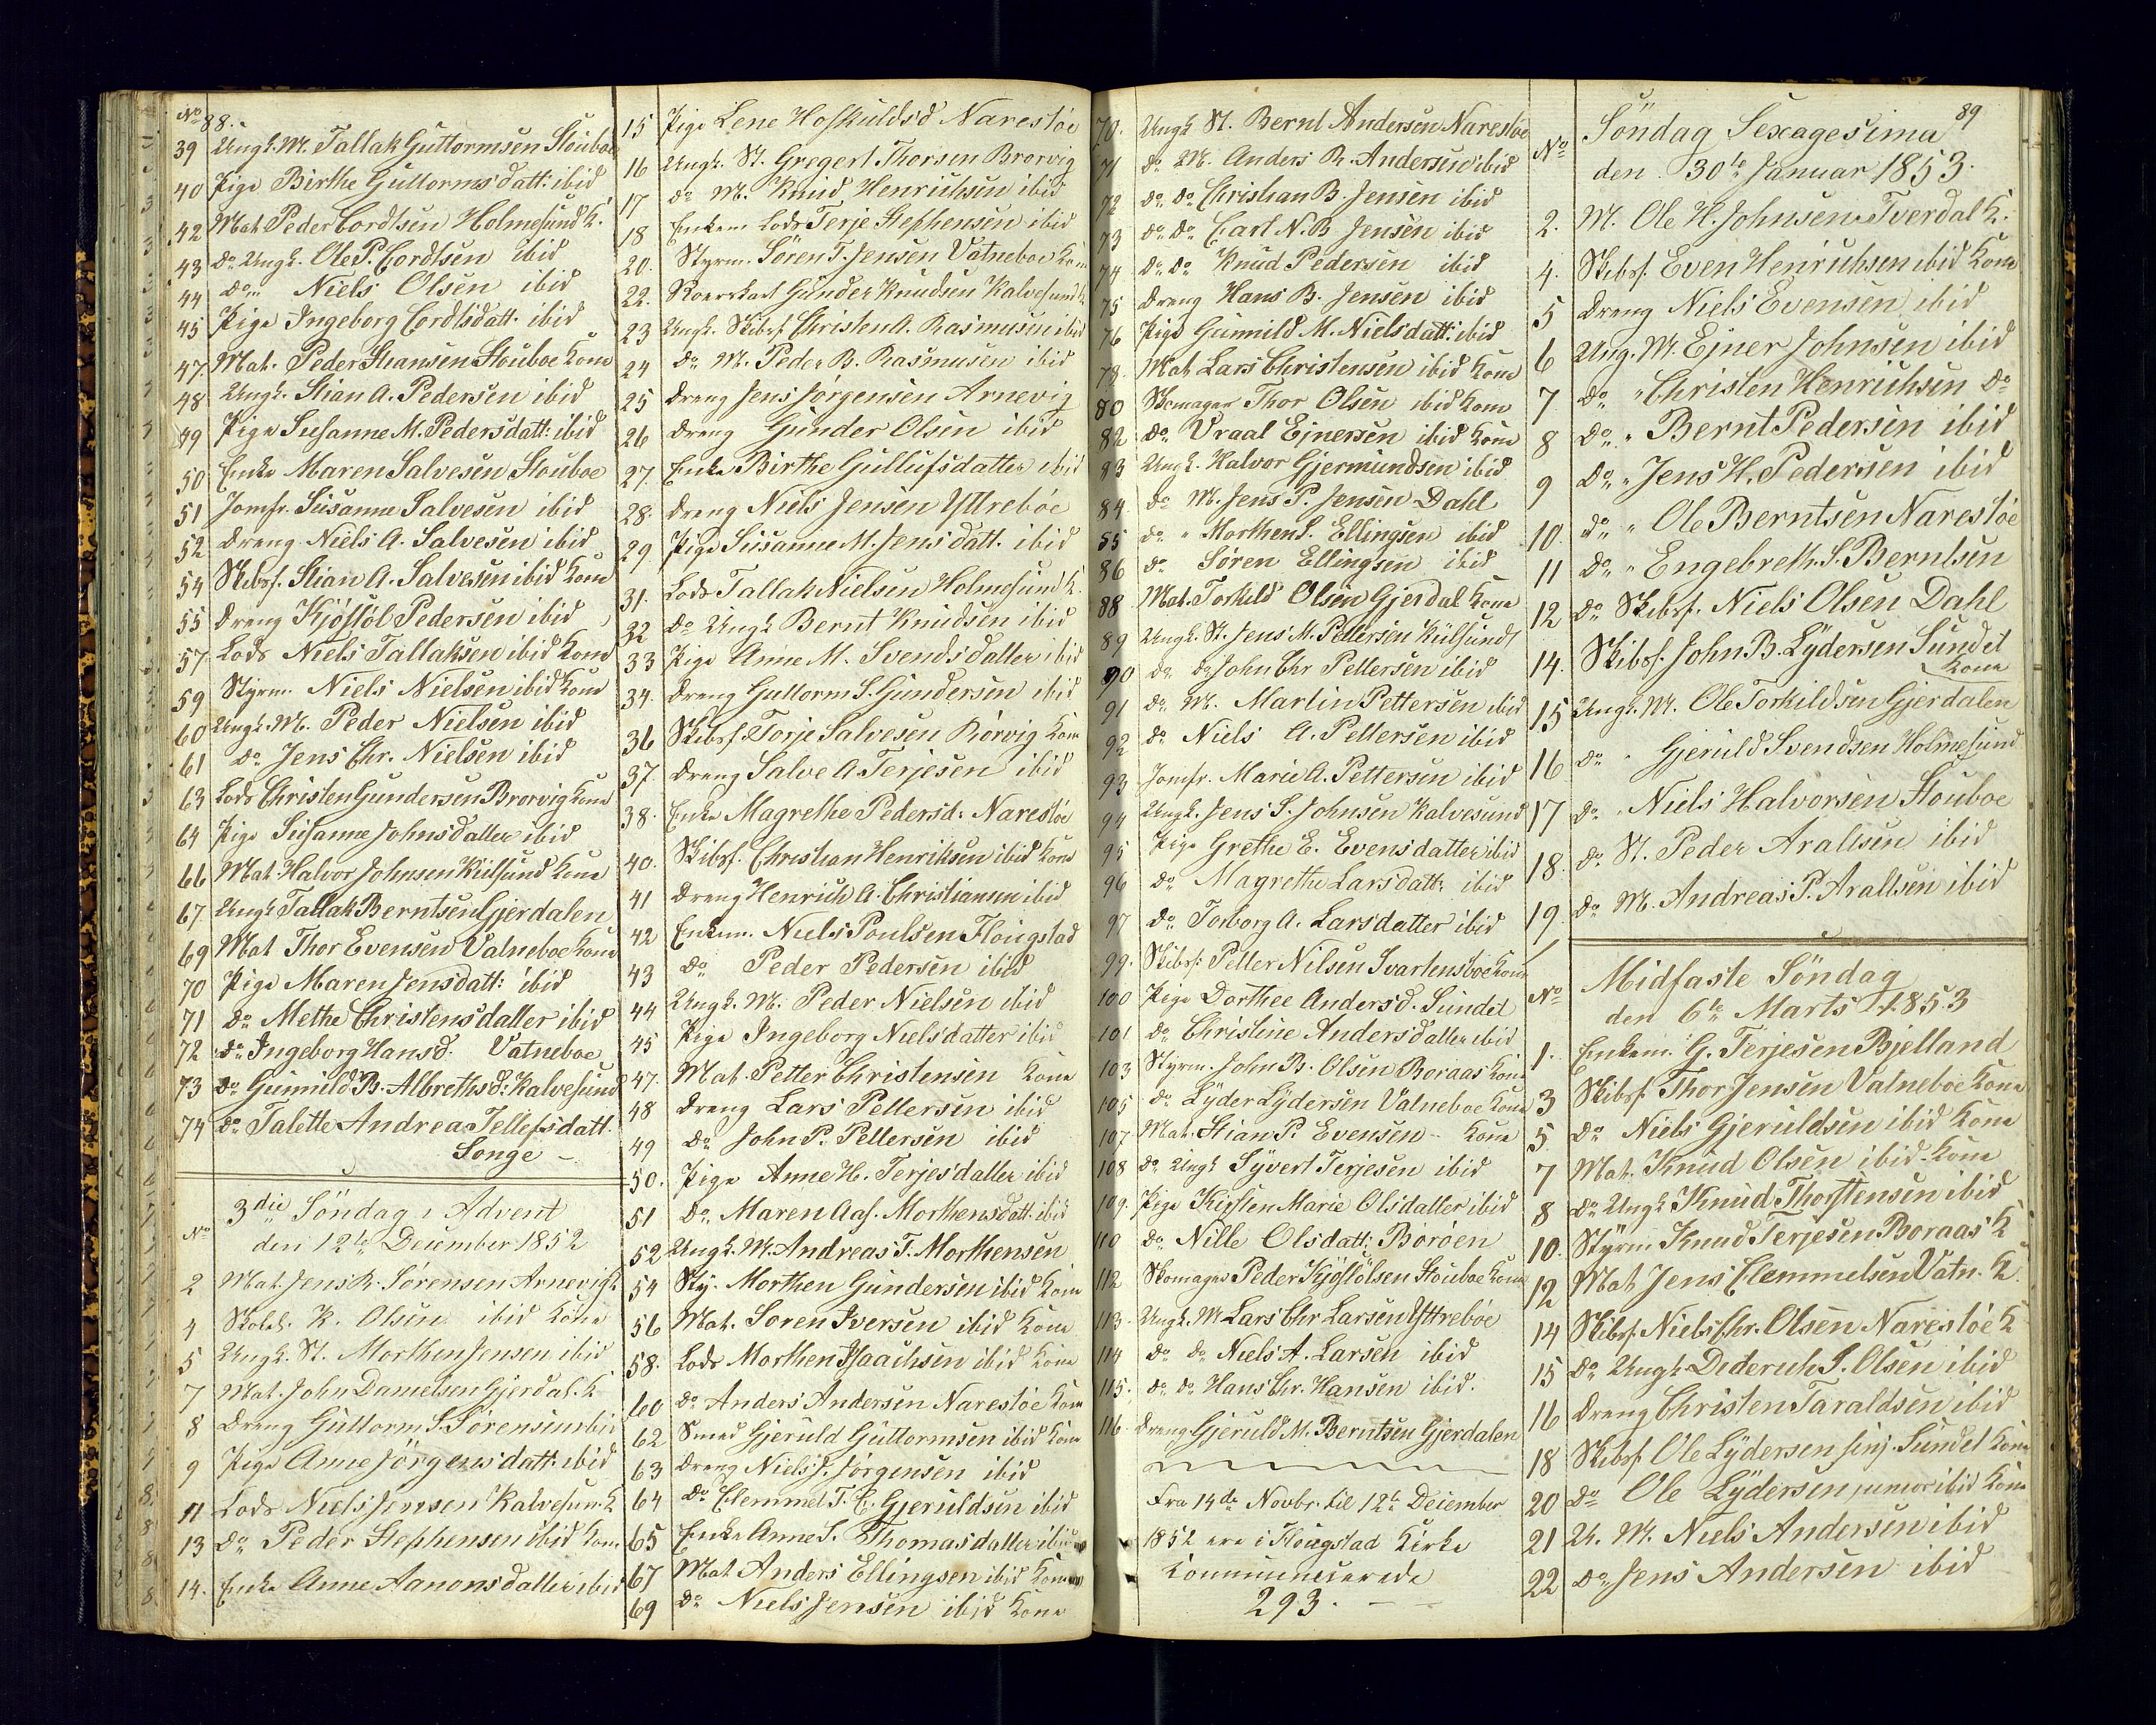 No 88.
39 Ungk. M. Tallak Guttormsen Stouboe
40 Pige Birthe Guttormsdatt: ibid
42 Mat. Peder Cordtsen Holmesund K.
43 do Ungk. Ole P. Cordtsen ibid
44 do Niels Olsen ibid
45 Pige Ingeborg Cordtsdatt. ibid
47 Mat. Peder Hansen Stouboe Kone
48 Ungk. Stian A. Pedersen ibid
49 Pige Susanne M. Pedersdatt: ibid
50 Enke Maren Salvesen Stouboe
51 Jomfr. Susanne Salvesen ibid
52 Dreng Niels A. Salvesen ibid
54 Skibsf. Stian A. Salvesen ibid Kone
55 Dreng Kjöstöl Pedersen ibid
57 Lods Niels Tallaksen ibid Kone
59 Styrm. Niels Nielsen ibid Kone
60 Ungk. M. Peder Nielsen ibid
61 do Jens Chr. Nielsen ibid
63 Lods Christen Gundersen Brorvig Kone
64 Pige Susanne Johnsdatter ibid
66 Mat. Halvor Johnsen Kiilsund Kone
67 Ungk Tallak Berntsen Gjerdalen
69 Mat Thor Evensen Vatneboe Kone
70 Pige Maren Jensdatt: ibid
71 do Methe Christensdatter ibid
72 do Ingeborg Hansd. Vatneboe
73 do Gunnild B. Albrethsd: Kalvesund
74 do Talette Andrea Tellefsdatt.
Songe
3die Söndag i Advent
No den 12te December 1852
2 Mat. Jens R. Sörensen Arnevig K
4 Skolel. K. Olsen ibid Kone
5 Ungk. St. Morthen Jensen ibid
7 Mat. John Danielsen Gjerdal. K
8 Dreng Guttorm S. Sörensen ibid
9 Pige Anne Jörgensdatt: ibid
11 Lods Niels Jensen Kalvesun. K
13 do Peder Stephensen ibid Kone
14. Enke Anne Aanonsdatter ibid
15 Pige Lene Hofkuldsd Narestöe
16 Ungk. St. Gregert Thorsen Brorvig
17 do M. Knud Henrichsen ibid
18 Enkem Lods Terje Stephensen ibid
20. Styrm. Sören T. Jensen Vatneboe Kone
22. Gunder Knudsen Kalvesund K
23 Ungk. Skibsf. Christen A. Rasmusen ibid
24 do M. Peder B. Rasmusen ibid
25 Dreng Jens Jörgensen Arnevig
26 Dreng Gunder Olsen ibid
27. Enke Birthe Gullufsdatter ibid
28. Dreng Niels Jensen Yttreböe
29 Pige Susanne M. Jensdatt. ibid
31. Lods Tallak Nielsen Holmesund K.
32 do Ungk Bernt Knudsen ibid
33 Pige Anne M. Svendsdatter ibid
34. Dreng Guttorm S. Gundersen ibid
36 Skibsf. Torje Salvesen Rörvig Kone
37. Dreng Salve A. Terjesen ibid
38. Enke Magrethe Pedersd: Narestöe
40. Skibsf. Christian Henriksen ibid Kone
41 Dreng Henrich A. Christiansen ibid
42 Enkem. Niels Poulsen Flougstad
43 do Peder Pedersen ibid
44 Ungk. M. Peder Nielsen ibid
45 Pige Ingeborg Nielsdatter ibid
47. Mat. Petter Christensen Kone
48 Dreng Lars Pettersen ibid
49 do John P. Pettersen ibid
50. Pige Anne H. Terjesdatter ibid
51 do Maren Aas. Morthensdatt. ibid
52 Ungk. M. Andreas T. Morthensen
54 Sty. Morthen Gundersen ibid Kone
56 Mat. Soren Iversen ibid Kone
58. Lods Morthen Isaachsen ibid Kone
60 do Anders Andersen Narestöe Kone
62 Smed Gjeruld Guttormsen ibid Kone
63 Dreng Niels J. Jörgensen ibid
64 do Clemmet T. E. Gjeruldsen ibid
65 Enke Anne S. Thomasdatter ibid
67 Mat Anders Ellingsen ibid Kone
69 do Niels Jensen ibid Kone
70. Ungk St. Bernt Andersen Narestöe
71 do M. Anders R. Andersen ibid
72 do do Christian B. Jensen ibid
73 do do Carl N. B Jensen ibid
74 do do Knud Pedersen ibid
75 Dreng Hans B. Jensen ibid
76 Pige Gunnild M. Nielsdatt: ibid
78. Mat Lars Christensen ibid Kone
80 Skomager Thor Olsen ibid Kone
82 do Vraal Ejnersen ibid Kone
83 Ungk. Halvor Gjermundsen ibid
84. do M. Jens P. Jensen Dahl
85 do " Morthen S. Ellingsen ibid
86 do Sören Ellingsen ibid
88 Mat. Torkild Olsen Gjerdal Kone
89 Ungk. St. Jens M. Pettersen Kiilsund
90 do do John Chr Pettersen ibid
91 do M. Martin Pettersen ibid
92 do Niels A. Pettersen ibid
93 Jomfr. Marie A. Pettersen ibid
94 Ungk. Jens S. Johnsen Kalvesund
95 Pige Grethe E. Evensdatter ibid
96 do Magrethe Larsdatt: ibid
97 do Torborg A. Larsdatter ibid
99. Skibsf. Petter Nilsen Svartensboe Kone
100 Pige Dorthee Andersd. Sundet
101 do Christine Andersdatter ibid
103 Styrm. John B. Olsen Boraas Kone
105 do Lyder Lydersen Vatneboe Kone
107 Mat. Stian P. Evensen Kone
108 do Ungk Syvert Terjesen ibid
109. Pige Kirsten Marie Olsdatter ibid
110 do Nille Olsdatt: Böröen
112 Skomager Peder Kjöstölsen Stouboe Kone
113. Ungk. M Lars Chr Larsen Yttreböe
114 do do Niels A. Larsen ibid
115. do do Hans Chr. Hansen ibid.
116. Dreng Gjeruld M. Berntsen Gjerdalen
Fra 14de Novbr. til 12te December
1852 ere i Flougstad Kirke
Kommunicerede
293.
89
Söndag Sexagesima
No den 30te Januar 1853.
2. M. Ole H. Johnsen Tverdal K.
4. Skibsf. Even Henrichsen ibid Kone
5 Dreng Niels Evensen ibid
6 Ung. M. Ejner Johnsen ibid
7. do " Christen Henrichsen do
8 do " Bernt Pedersen ibid
9 do " Jens H. Pedersen ibid
10. do " Ole Berntsen Narestöe
11 do " Engebreth S. Berntsen
12 do Skibsf. Niels Olsen Dahl
14. Skibsf. John B. Lydersen Sundet
Kone
15 Ungk. M. Ole Torkildsen Gjerdalen
16 do " Gjeruld Svendsen Holmesund
17 do " Niels Halvorsen Stouboe
18. do St. Peder Araltsen ibid
19. do M. Andreas P. Araltsen ibid
Midfaste Söndag
No den 6te Marts 1853
1. Enkem. G. Terjesen Bjelland
3 Skibsf. Thor Jensen Vatneboe Kone
5. do Niels Gjeruldsen ibid Kone
7 Mat. Knud Olsen ibid Kone
8 do Ungk Knud Thorstensen ibid
10. Styrm Knud Terjesen Boraas K
12 Mat Jens Clemmetsen Vatn. K.
14 Skibsf. Niels Chr. Olsen Narestöe K
15 do Ungk Dideruch S. Olsen ibid
16 Dreng Christen Taraldsen ibid
18 Skibsf. Ole Lydersen senj. Sundet Kone
20 do Ole Lydersen junior ibid Kone
21 U. M. Niels Andersen ibid
22 do Jens Andersen ibid